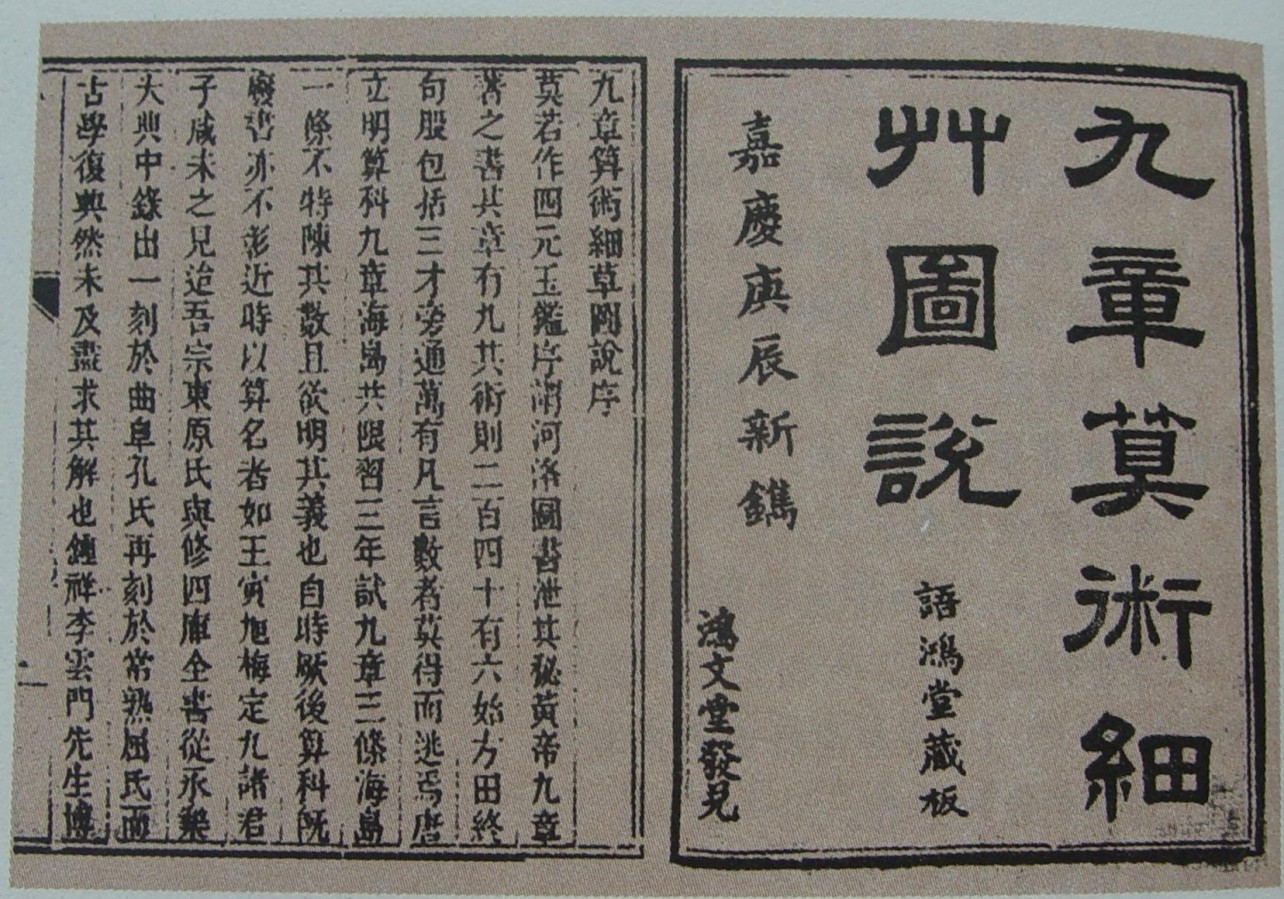 九章筭術細
艸圖說
語鴻堂藏板
嘉慶庚辰新鐫
鴻文堂發兌
九章算術細草圖說序
莫若作四元玉鑑序謂河洛圖書泄其秘黃帝九章
著之書其章有九其術則二百四十有六始方田終
句股包括三才旁通萬有凡言數者莫得而逃焉唐
立明算科九章海島共限習三年試九章三條海島
一條不特陳其數且欲明其義也自時厥後算科既
廢書亦不彰近時以算名者如王寅旭梅定九諸君
子咸未之見迨吾宗東原氏與修四庫全書從永樂
大典中錄出一刻於曲阜孔氏再刻於常熟屈氏而
古學復興然未及盡求其解也鍾祥李雲門先生博